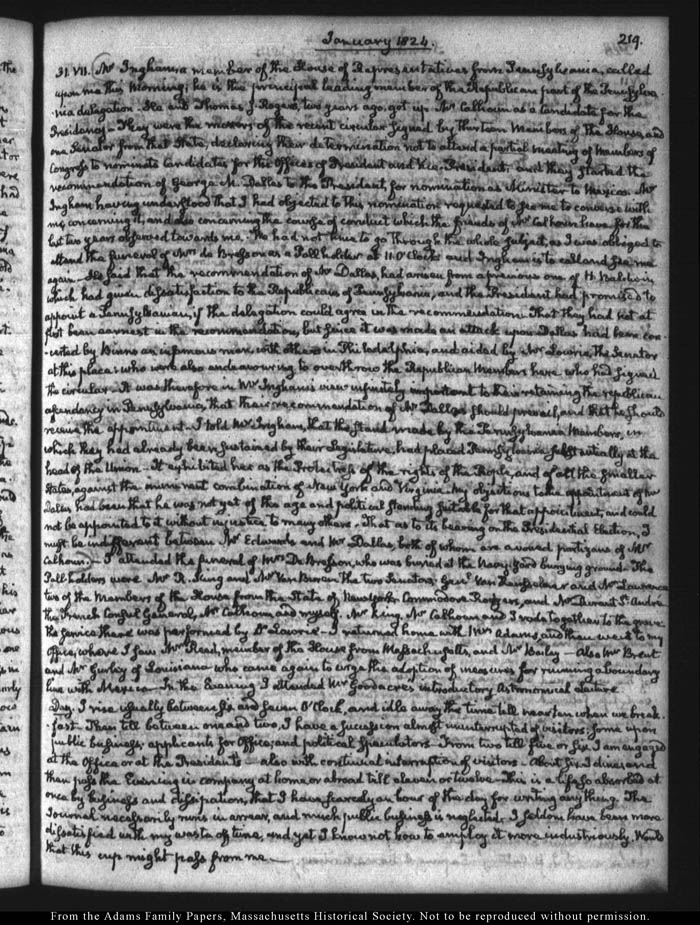 January 1824.
219.
31. VII. Mr Ingham a member of the House of Representatives from Pennsylvania, called
upon me this Morning; he is the principal leading member of the Republican part of the Pennsylva-
nia delegation. He and Thomas J. Rogers, two years ago, got up Mr Calhoun as a Candidate for the
Presidency. They were the movers of the recent circular signed by thirteen Members of the House, and
one Senator from that State, declaring their determination not to attend a partial meeting of members of
Congress to nominate candidates for the Offices of President and Vice-President; and they started the
recommendation of George M. Dallas to the President, for nomination as Minister to Mexico. Mr
Ingham having understood that I had objected to this nomination requested to see me to converse with
me concerning it, and also concerning the course of conduct which the friends of Mr Calhoun have for the
last two years observed towards me. He had not time to go through the whole subject, as I was obliged to
attend the funeral of Mrs de Bresson as a Pall holder at 11 O'Clock and Ingham is to call and see me
again. He said that the recommendation of Mr Dallas, had arisen from a previous one of H. Baldwin,
which had given dissatisfaction to the Republicans of Pennsylvania, and the President had promised to
appoint a Pennsylvanian, if the delegation could agree in the recommendation. That they had not at
first been earnest in the recommendation, but since it was made an attack upon Dallas had been con-
certed by Binns an infamous man, with others in Philadelphia, and aided by Mr Lowrie, the Senator
at this place; who were also endeavouring to overthrow the Republican Members here who had signed
the circular. It was therefore in Mr Ingham's view infinitely important to their retaining the republican
ascendancy in Pennsylvania, that their recommendation of Mr Dallas should prevail, and that he should
receive the appointment. I told Mr Ingham, that the stand made by the Pennsylvania Members, in
which they had already been sustained by their Legislature, had placed Pennsylvania substantially at the
head of the Union. It exhibited her as the Protectress of the rights of the People, and of all the smaller
States, against the combination of New York and Virginia. My objections to the appointment of Mr
Dallas had been that he was not yet of the age and political standing suitable for that appointment, and could
not be appointed to it without injustice to many others. That as to its bearing on the Presidential Election, I
must be indifferent between Mr Edwards and Mr Dallas, both of whom are avowed partizans of Mr
Calhoun. I attended the funeral of Mrs De Bresson, who was buried at the Navy-Yard burying ground. The
Pall holders were Mr R. King and Mr Van Buren the two Senators, Genl Van Rensselaer and Mr Lawrence
two of the Members of the House from the State of New York, Commodore Rodgers, and Mr Durant St. André
the French Consul General, Mr Calhoun and myself. Mr King, Mr Calhoun and I rode together to the grave.
the service there was performed by Dr Laurie. I returned home with Mrs Adams, and then went to my
Office, where I saw Mr Reed, member of the House from Massachusetts, and Mr Baily. Also Mr Brent
and Mr Gurley of Louisiana who came again to urge the adoption of measures for running a boundary
line with Mexico. In the Evening I attended Mr Goodacre's introductory Astronomical Lecture.
Day. I rise usually between six and seven O'Clock, and idle away the time till near ten when we break-
fast. Then till between one and two, I have a succession almost uninterrupted of visitors. Some upon
public business, applicants for Office, and political speculators. From two till five or six I am engaged
at the Office or at the President's — also with continual interruption of visitors. About six I dine, and
then pass the Evening in company at home or abroad till eleven or twelve. This is a life so absorbed at
once by business and dissipation, that I have scarcely an hour of the day for writing any thing. The
Journal necessarily runs in arrear, and much public business is neglected. I seldom have been more
dissatisfied with my waste of time, and yet I know not how to employ it more industriously. Would
that this cup might pass from me.
From the Adams Family Papers, Massachusetts Historical Society. Not to be reproduced without permission.